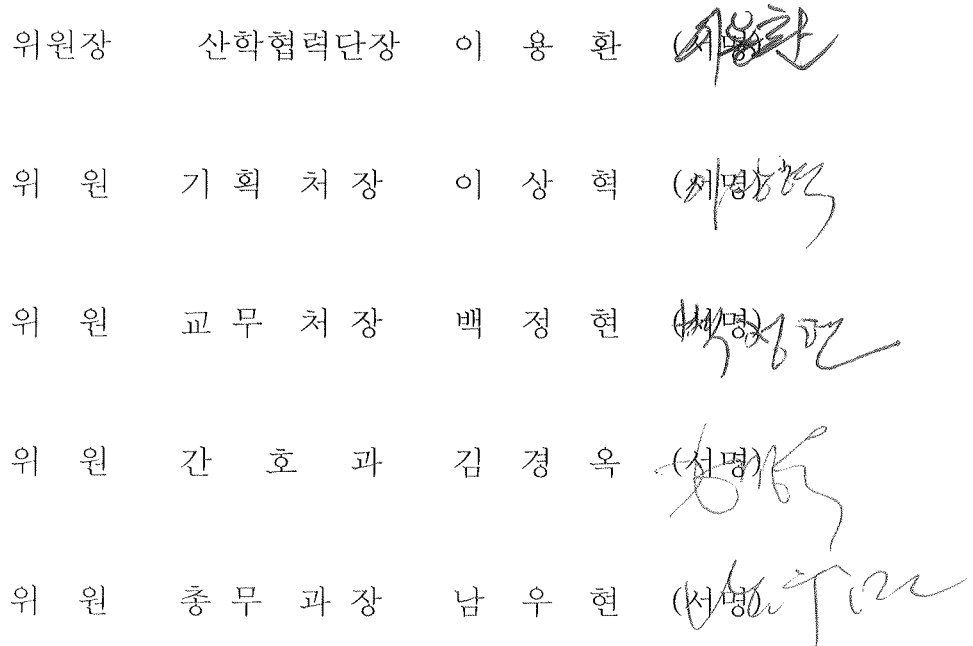 위원장 산학협력단장 이 용 환 (서명)
위 원 기 획 처 장 이 상 혁 (서명)
위 원 교 무 처 장 백 정 현 (서명)
위 원 간 호 과 김 경 옥 (서명)
위 원 총 무 과 장 남 우 현 (서명)